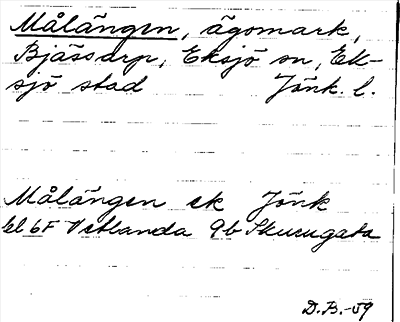 Målängen, ägomark,
Bjässarp, Eksjö sn, Ek-
sjö stad Jönk. l.
Målängen ek Jönk
bl 6F Vetlanda 9b Skurugata
D.B.-59